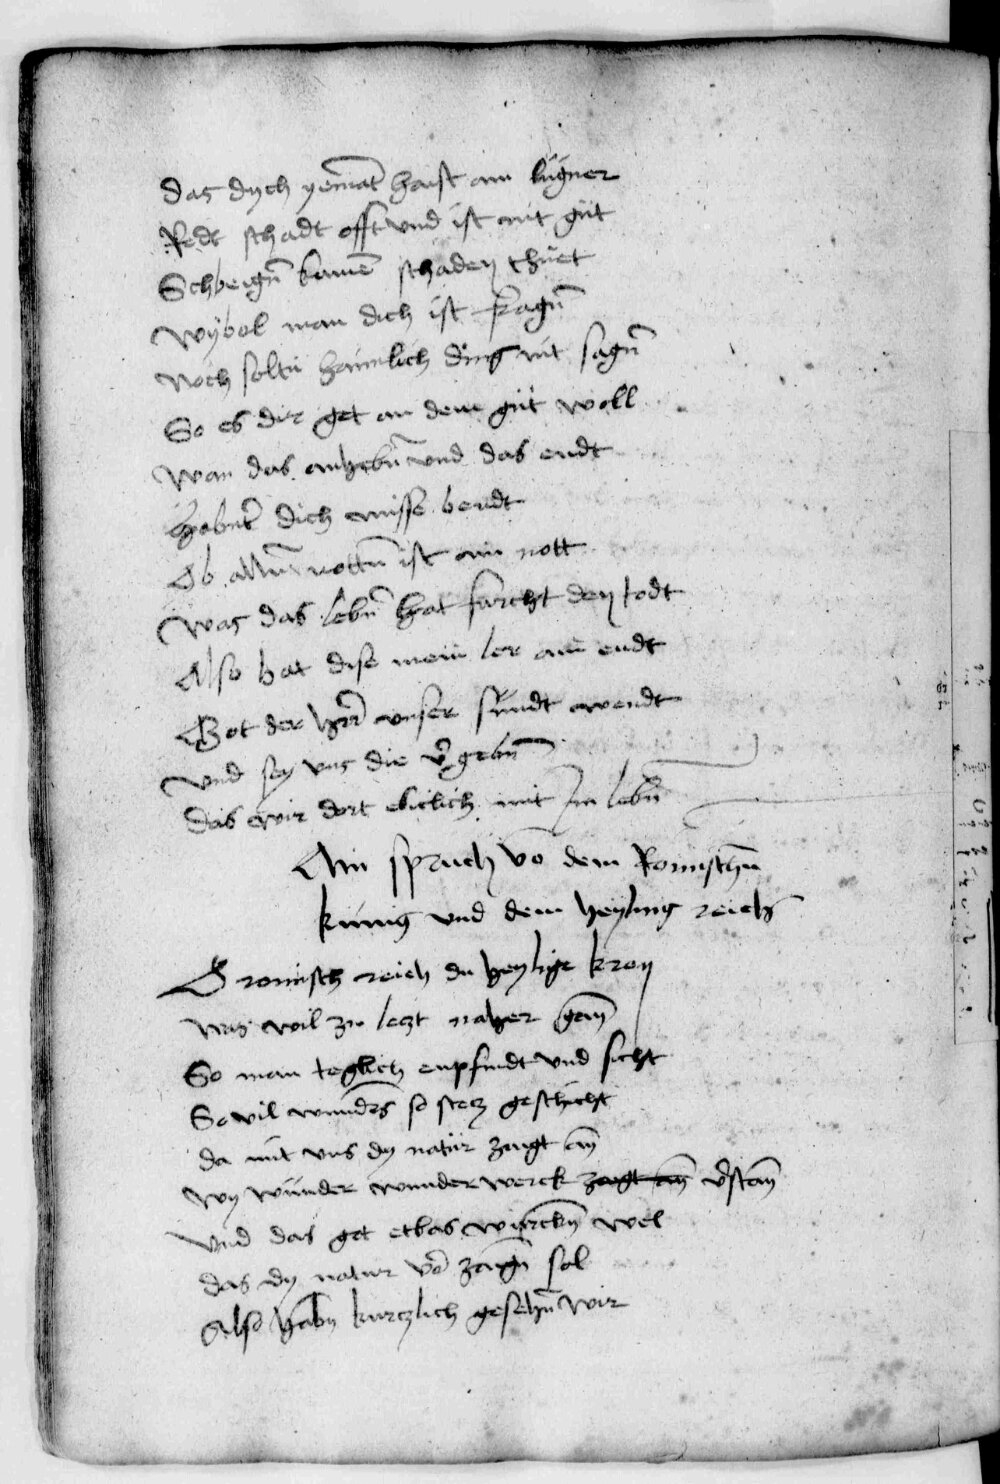 das dych yemāt haist ain lügner
Redt schadt offt und ist nit güt
Schbeign̄ kainē schaden thüet
Wybol man dich ist fragn̄
Noch soltu haimlich ding nit sagn̄
So es dir get an dem güt woll
Wan das anhebn̄ und das endt
habnt dich misse bendt
Ob alln̄ nottn̄ ist ain nott
Was das lebn̄ hat fürcht den todt
Also hat dise mein ler ain endt
Got der her unser sündt wendt
Und sey uns die v̄gebn̄
Das wir dort ebiclich mit Im lebn̄
Ain spruch vō dem Romischn̄
künig und dem heyling reich
O romisch reich du heylige kron
Was wil zu letzt naher gan
So man teglich enpfindt und sicht
So vil wunders so stetz geschicht
da mit uns dy natür zaigt an
Wy wunder wunderwerck zaigt an v̄stan
Und das got etbas würckn̄ wel
das dy natur vor zaign̄ sol
Also habn̄ kurczlich gesehn̄ wir